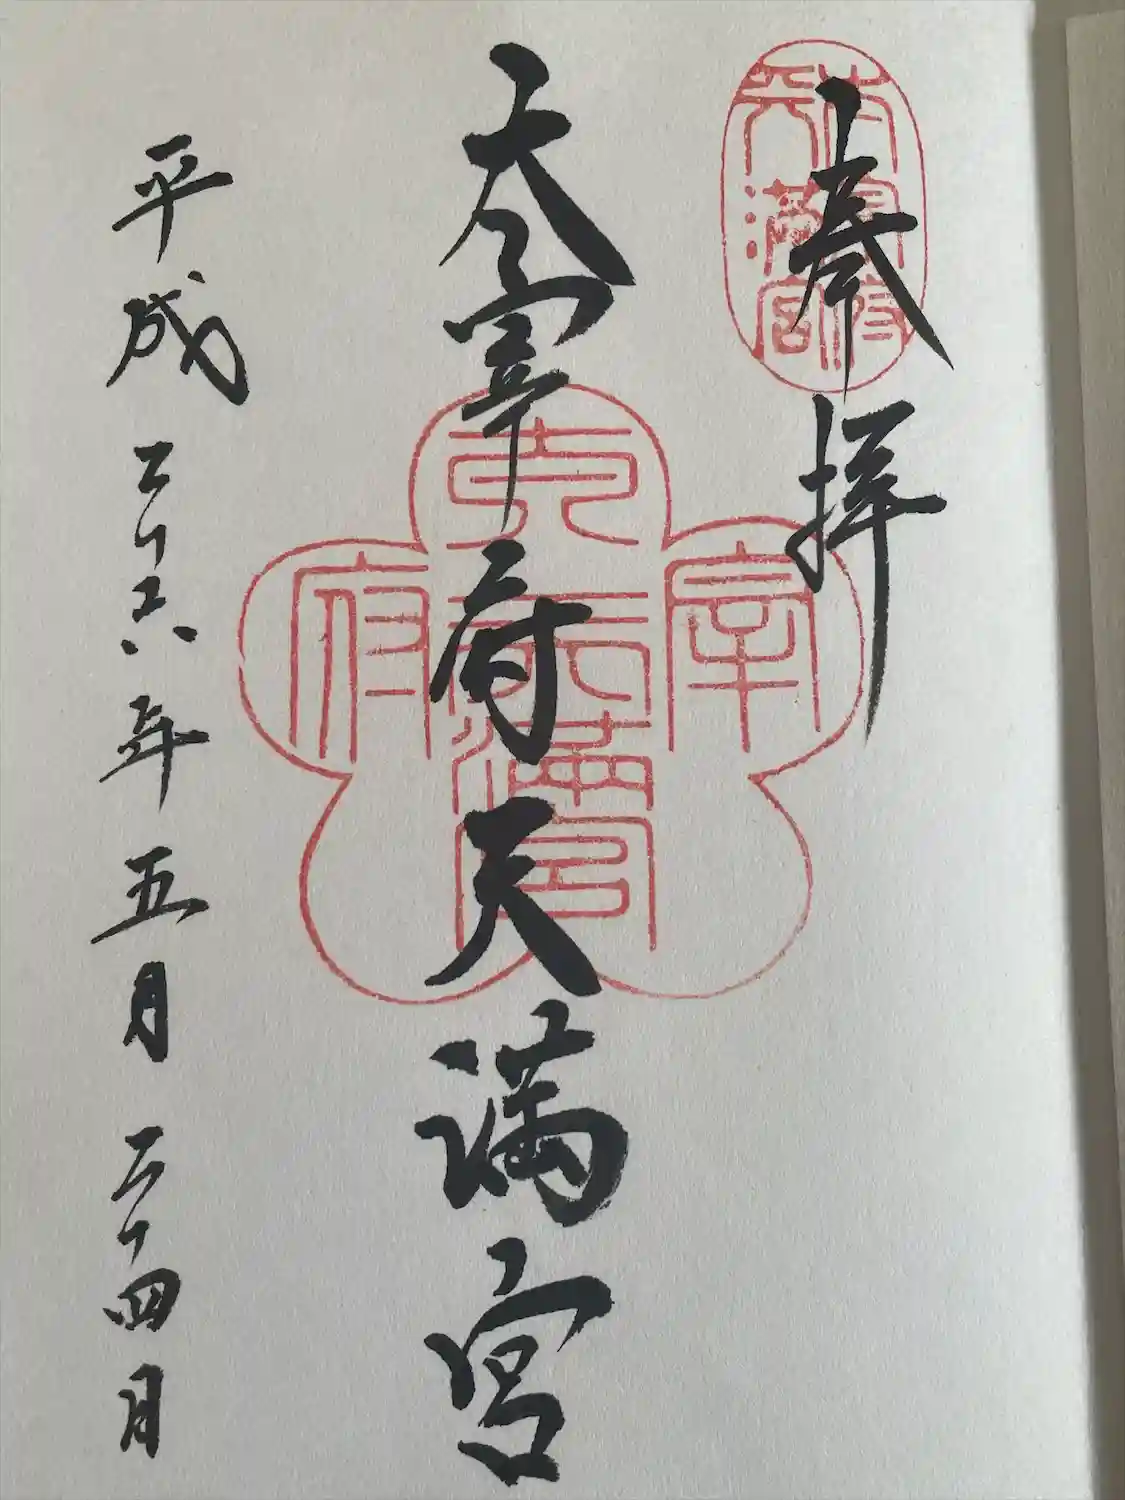 奉拝
太宰府
天満宮
太宰府天満宮
太宰府天満宮
平成二十六年五月二十四日